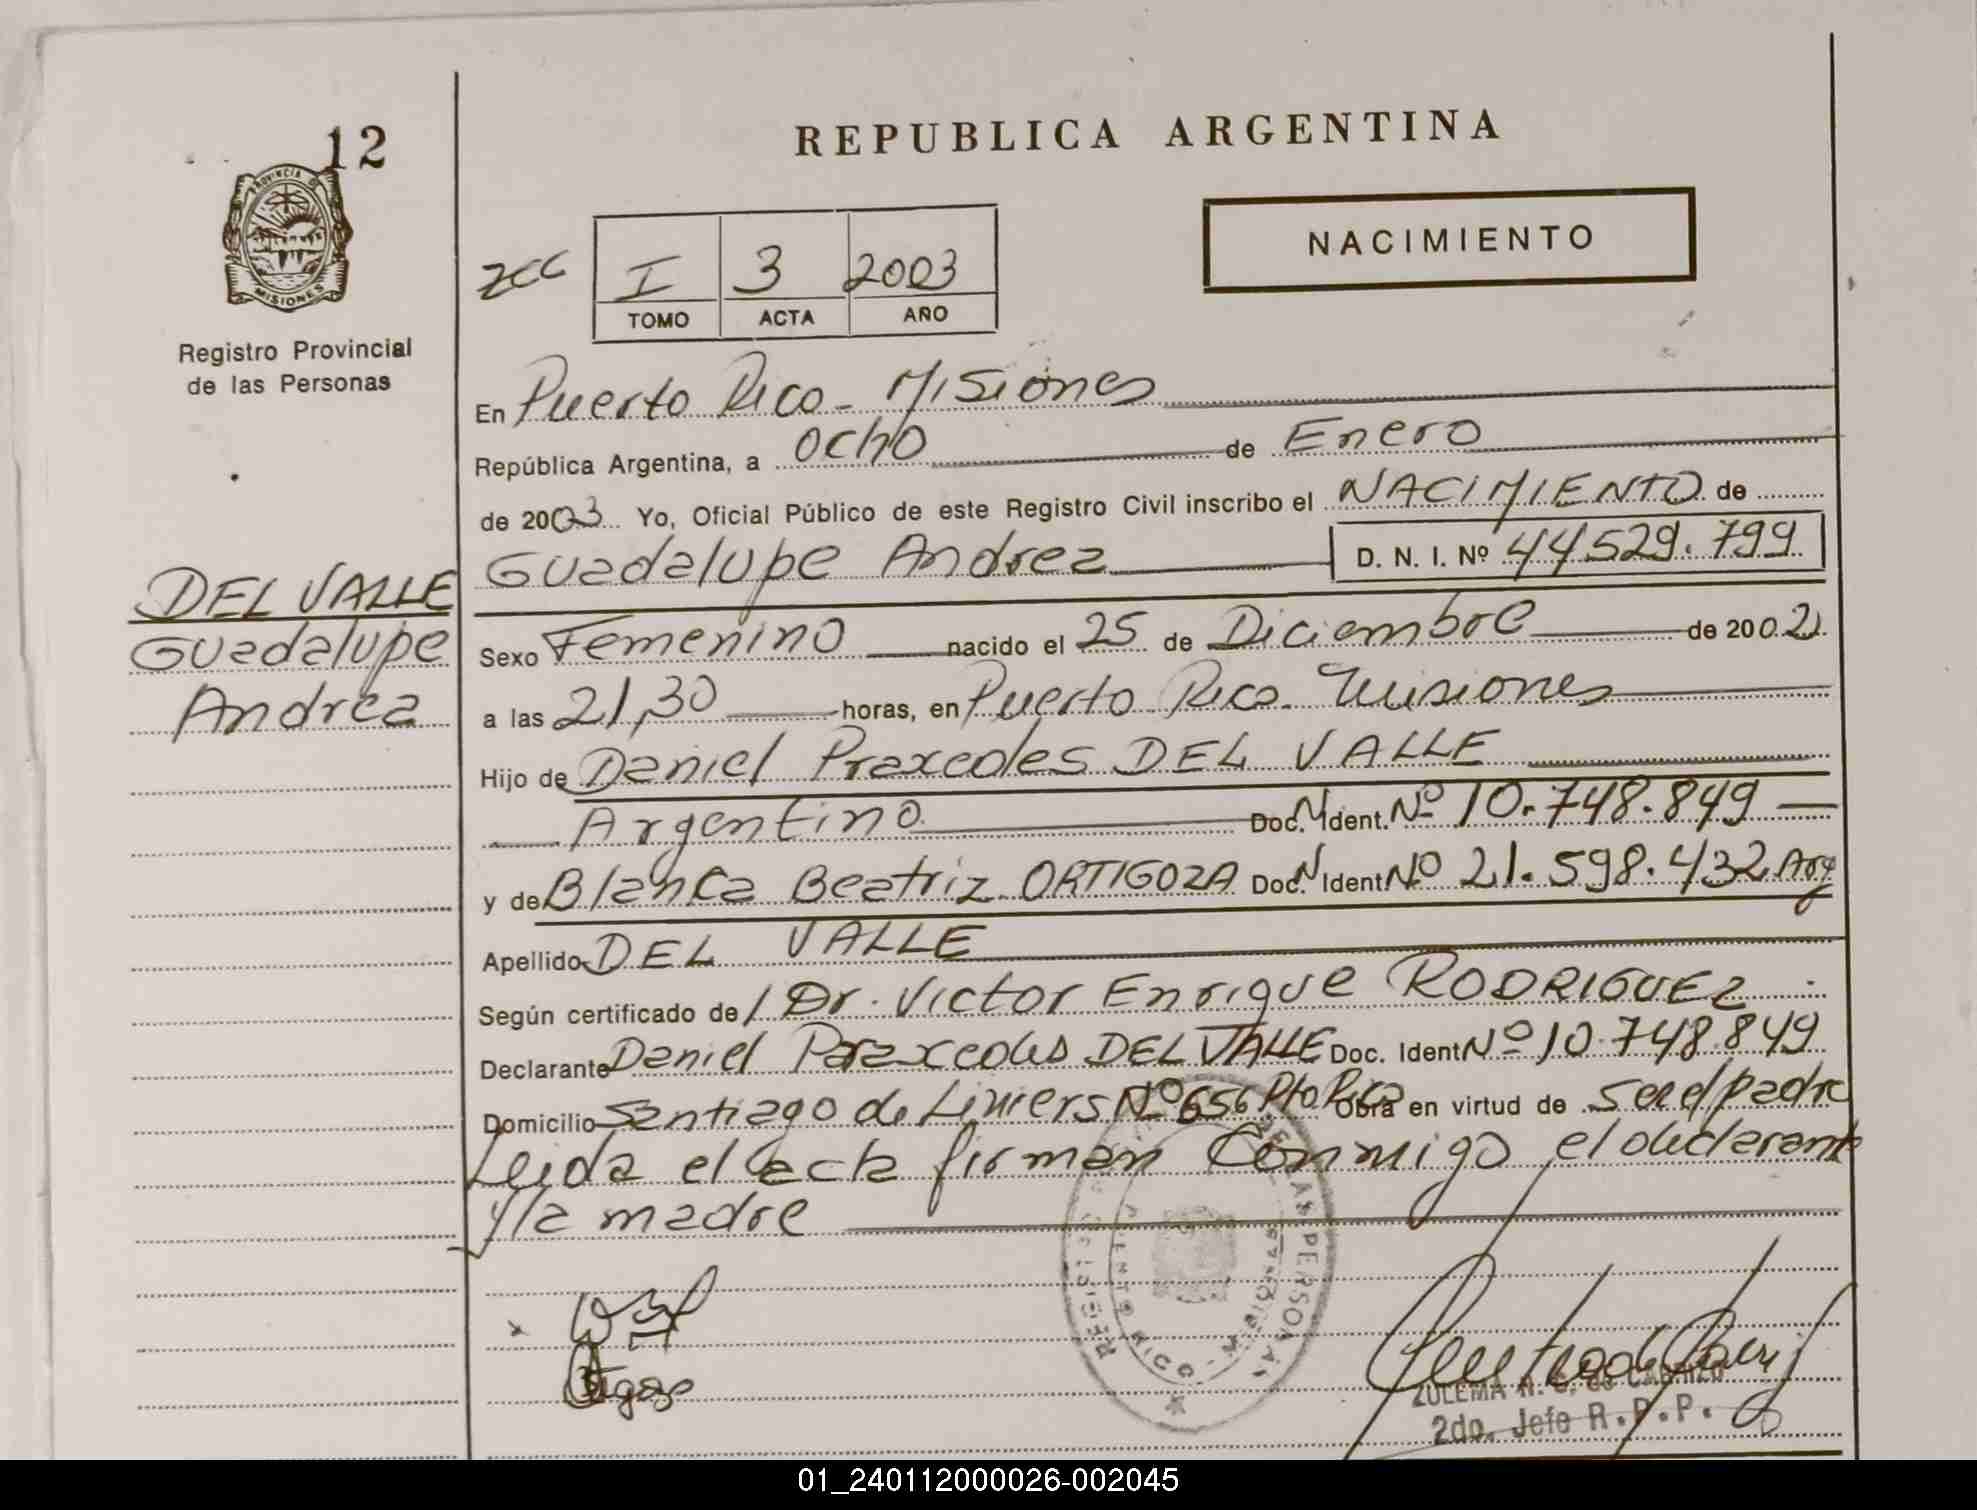 12
PROVINCIA DE
MISIONES
Registro Provincial
de las Personas
REPUBLICA ARGENTINA
NACIMIENTO
I 3 2003
TOMO ACTA AÑO
En Puerto Rico - Misiones
República Argentina, a ocho de Enero
de 2003 Yo, Oficial Público de este Registro Civil inscribo el NACIMIENTO de
Guadalupe Andrea D. N. I. Nº 44529.799
DEL VALLE
Guadalupe
Andrea
Sexo Femenino nacido el 25 de Diciembre de 2002
a las 21,30 horas, en Puerto Rico. Misiones
Hijo de Daniel Praxedes DEL VALLE
Argentino Doc. N. Ident. Nº 10.748.849
y de Blanca Beatriz ORTIGOZA Doc. N. Ident Nº 21.598.432 Arg
Apellido DEL VALLE
Según certificado de Dr. Victor Enrique RODRIGUEZ
Declarante Daniel Praxedes DEL VALLE Doc. Ident Nº 10.748.849
Domicilio Santiago de Liniers Nº 656 Pto Rico Obra en virtud de ser el padre
Leida el acta firman Conmigo el declarante
y la madre
ZULEMA
2do. Jefe R.P.P.
01_240112000026-002045